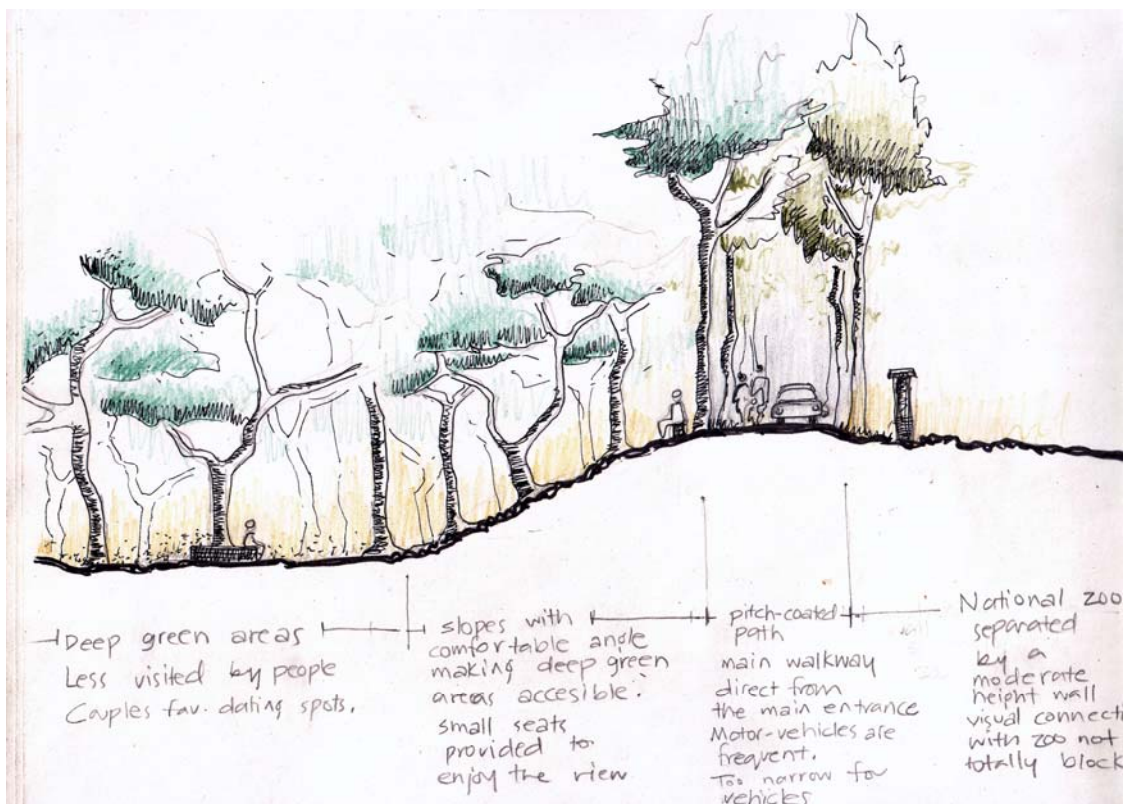 Deep green areas
Less visited by people
Couples fav. dating spots.
slopes with
comfortable angle
making deep green
areas accesible.
small seats
provided to
enjoy the view
pitch-coated
path
main walkway
direct from
the main entrance
Motor-vehicles are
frequent.
Too narrow for
vehicles
National zoo
separated
by a
moderate
height wall
visual connecti
with zoo not
totally block